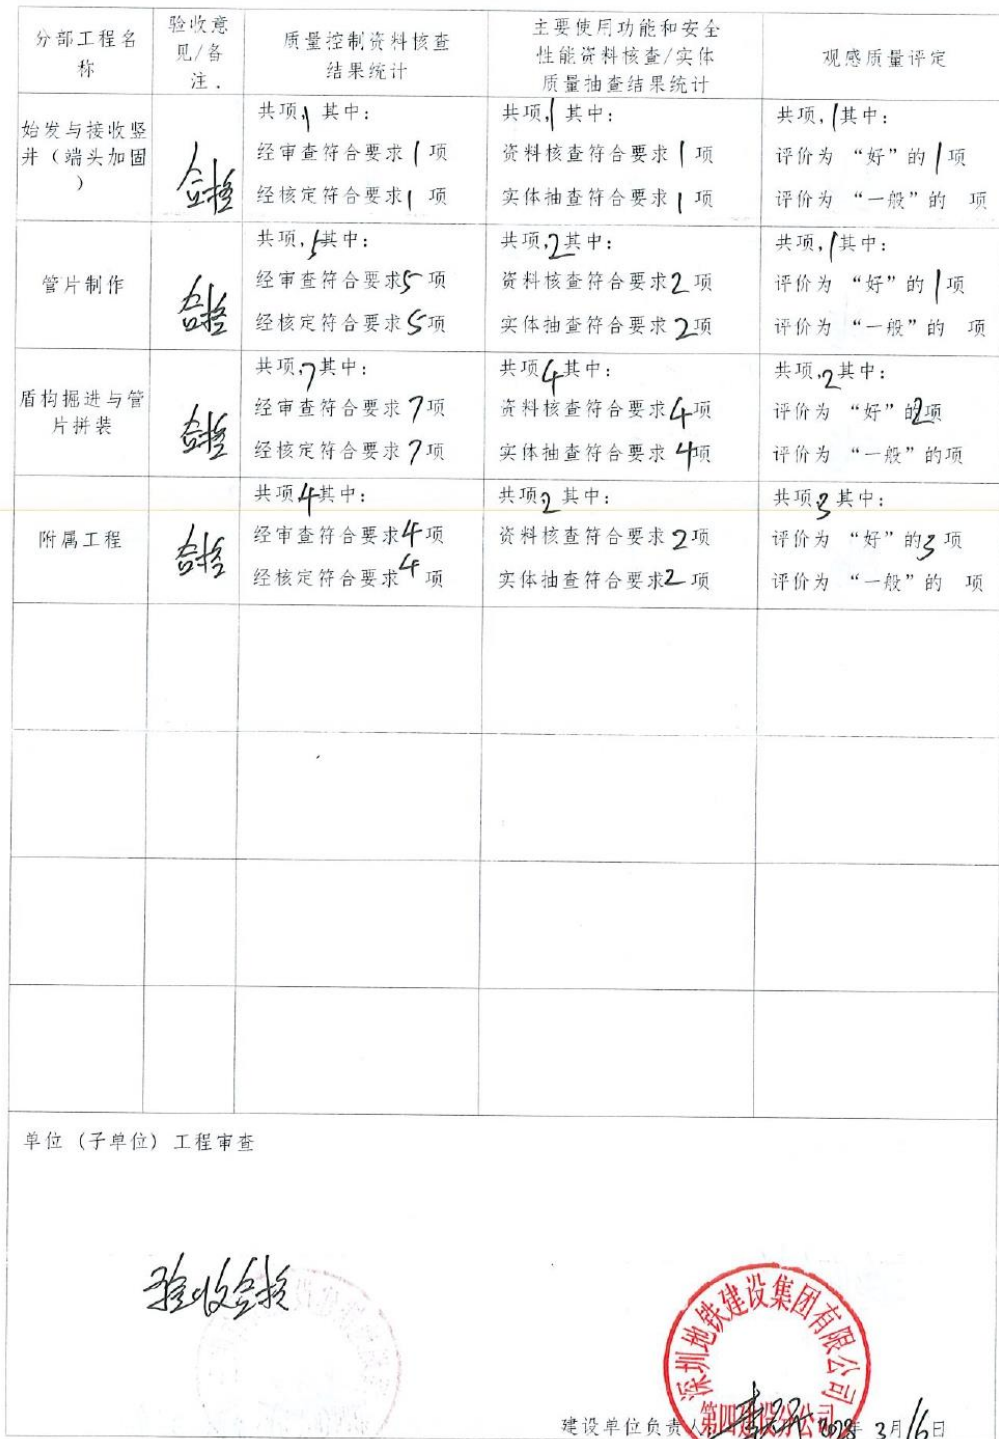 分部工程名
称
验收意
见/备
注.
质量控制资料核查
结果统计
主要使用功能和安全
性能资料核查/实体
质量抽查结果统计
观感质量评定
始发与接收竖
井（端头加固
）
合格
共项,1其中:
经审查符合要求1项
经核定符合要求1项
共项,1其中:
资料核查符合要求1项
实体抽查符合要求1项
共项,1其中:
评价为“好”的1项
评价为“一般”的 项
管片制作
合格
共项,5其中:
经审查符合要求5项
经核定符合要求5项
共项,2其中:
资料核查符合要求2项
实体抽查符合要求2项
共项,1其中:
评价为“好”的1项
评价为“一般”的 项
盾构掘进与管
片拼装
合格
共项,7其中:
经审查符合要求7项
经核定符合要求7项
共项4其中:
资料核查符合要求4项
实体抽查符合要求4项
共项,2其中:
评价为“好”的2项
评价为“一般”的项
附属工程
合格
共项4其中:
经审查符合要求4项
经核定符合要求4项
共项2其中:
资料核查符合要求2项
实体抽查符合要求2项
共项3其中:
评价为“好”的3项
评价为“一般”的 项
单位（子单位）工程审查
验收合格
深圳地铁建设集团有限公司
第四建设分公司
建设单位负责人 年3月16日